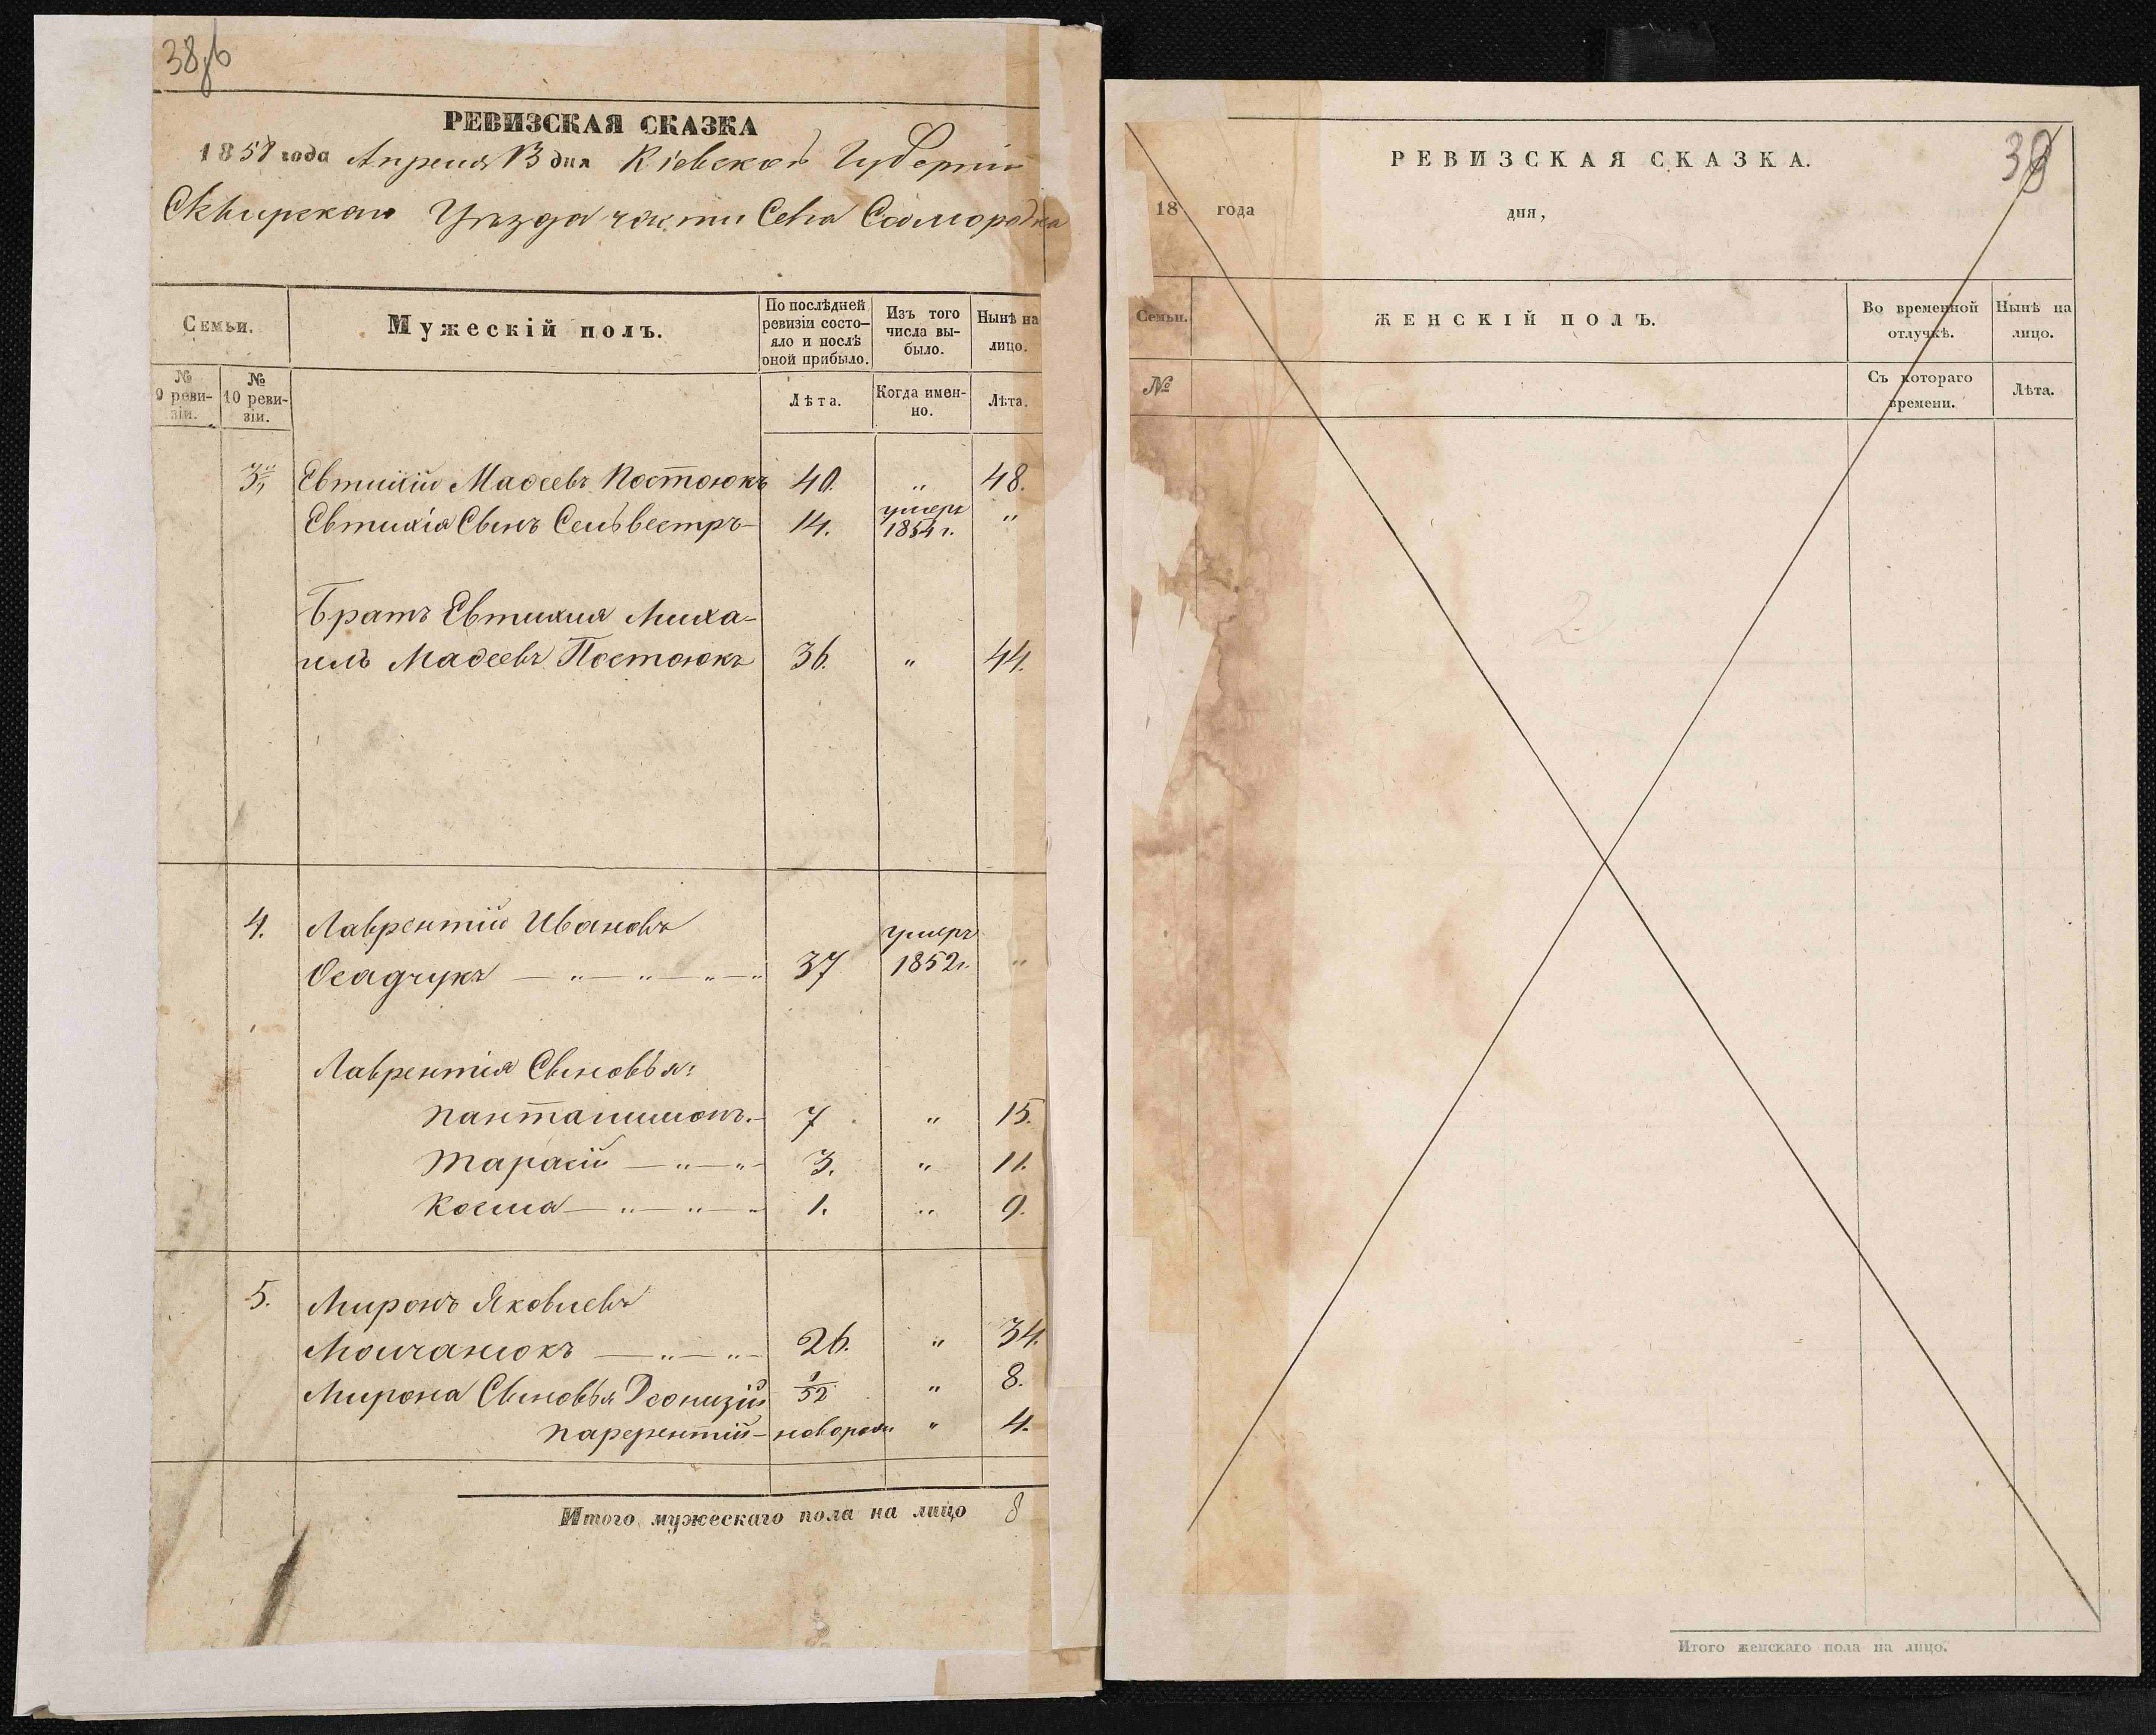 38
РЕВИЗСКАЯ СКАЗКА
1858 года Апреля 13 дня Кіевской Губерніи
Сквирскаго Уѣзда части Села Самгородка
Семьи.
Мужескій полъ.
По послѣдней ревизіи состо-
яло и послѣ
оной прибыло.
Изъ того
числа вы-
было.
Нынѣ на
лицо.
№
9 реви-
зіи.
№
10 реви-
зіи.
Лѣта.
Когда имен-
но.
Лѣта.
3. Евтихій Маѳеевъ Постоюкъ 40. " 48.
Евтихія Сынъ Сельвестръ 14. умеръ 1854 г. "
Братъ Евтихия Миха-
илъ Маѳеевъ Постоюкъ 36. " 44.
4. Лаврентій Ивановъ
Осадчукъ — " — " — " — " 37 умеръ 1852 г. "
Лаврентія Сыновья:
Панталимонъ. 7 " 15.
Тарасій — " — " 3. " 11.
Косма — " — " — " 1. " 9.
5. Миронъ Яковлевъ
Молчанюкъ — " — " 26. " 34.
Мирона Сыновья Деонизій 1/52 " 8.
Парѳентій — новорожд " 4.
Итого мужескаго пола на лицо 8
38
РЕВИЗСКАЯ СКАЗКА.
18 года дня,
Семьи.
ЖЕНСКІЙ ПОЛЪ.
Во временной
отлучкѣ.
Нынѣ на
лицо.
№
Съ котораго
времени.
Лѣта.
Итого женскаго пола на лицо.